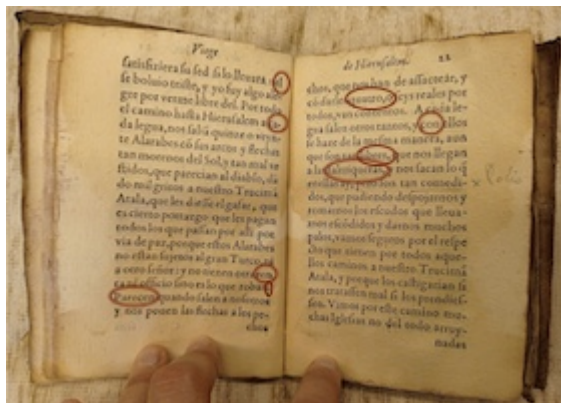 Viage
satisfiziera su sed si lo lleuara
se boluio triste, y yo fuy algo ale-
gre por verme libre del. Por todo
el camino hasta Hierusalem a ca-
da legua, nos salia quinze o veyn-
te Alarabes cõ sus arcos y flechas
tan morenos del Sol, y tan mal ve
stidos, que parecian al diablo, dã
do mil gritos a nuestro Trucimã
Atala, que les diesse el gafar, que
es cierto portazgo que les pagan
todos los que passan por alli por
via de paz, porque estos Alarabes
no estan sujetos al gran Turco, ni
a otro señor: y no tienen otra ren
ta ni officio sino es lo que roban
Parecen quando salen a nosotros
y nos ponen las flechas a los pe-
chos
de Hierusalem. 22
chos, que nos han de assaetear, y
cõ darles quatro, o cys reales por
todos, van contentos. A cada le-
gua salen otros tantos, y con ellos
se haze de la mesma manera, aun
que son tan que nos llegan
a las y nos sacan lo q̃
en ellas ay, pero son tan comedi-
dos, que pudiendo despojarnos y
tomarnos los escudos que lleua-
mos escõdidos y darnos muchos
palos, vamos seguros por el respe
cto que tienen por todos aque-
llos caminos a nuestro Trucimã
Atala, y porque los castigarian si
nos tratassen mal si los prendies-
sen. Vimos por este camino mu-
chas Iglesias no del todo arruy-
nadas